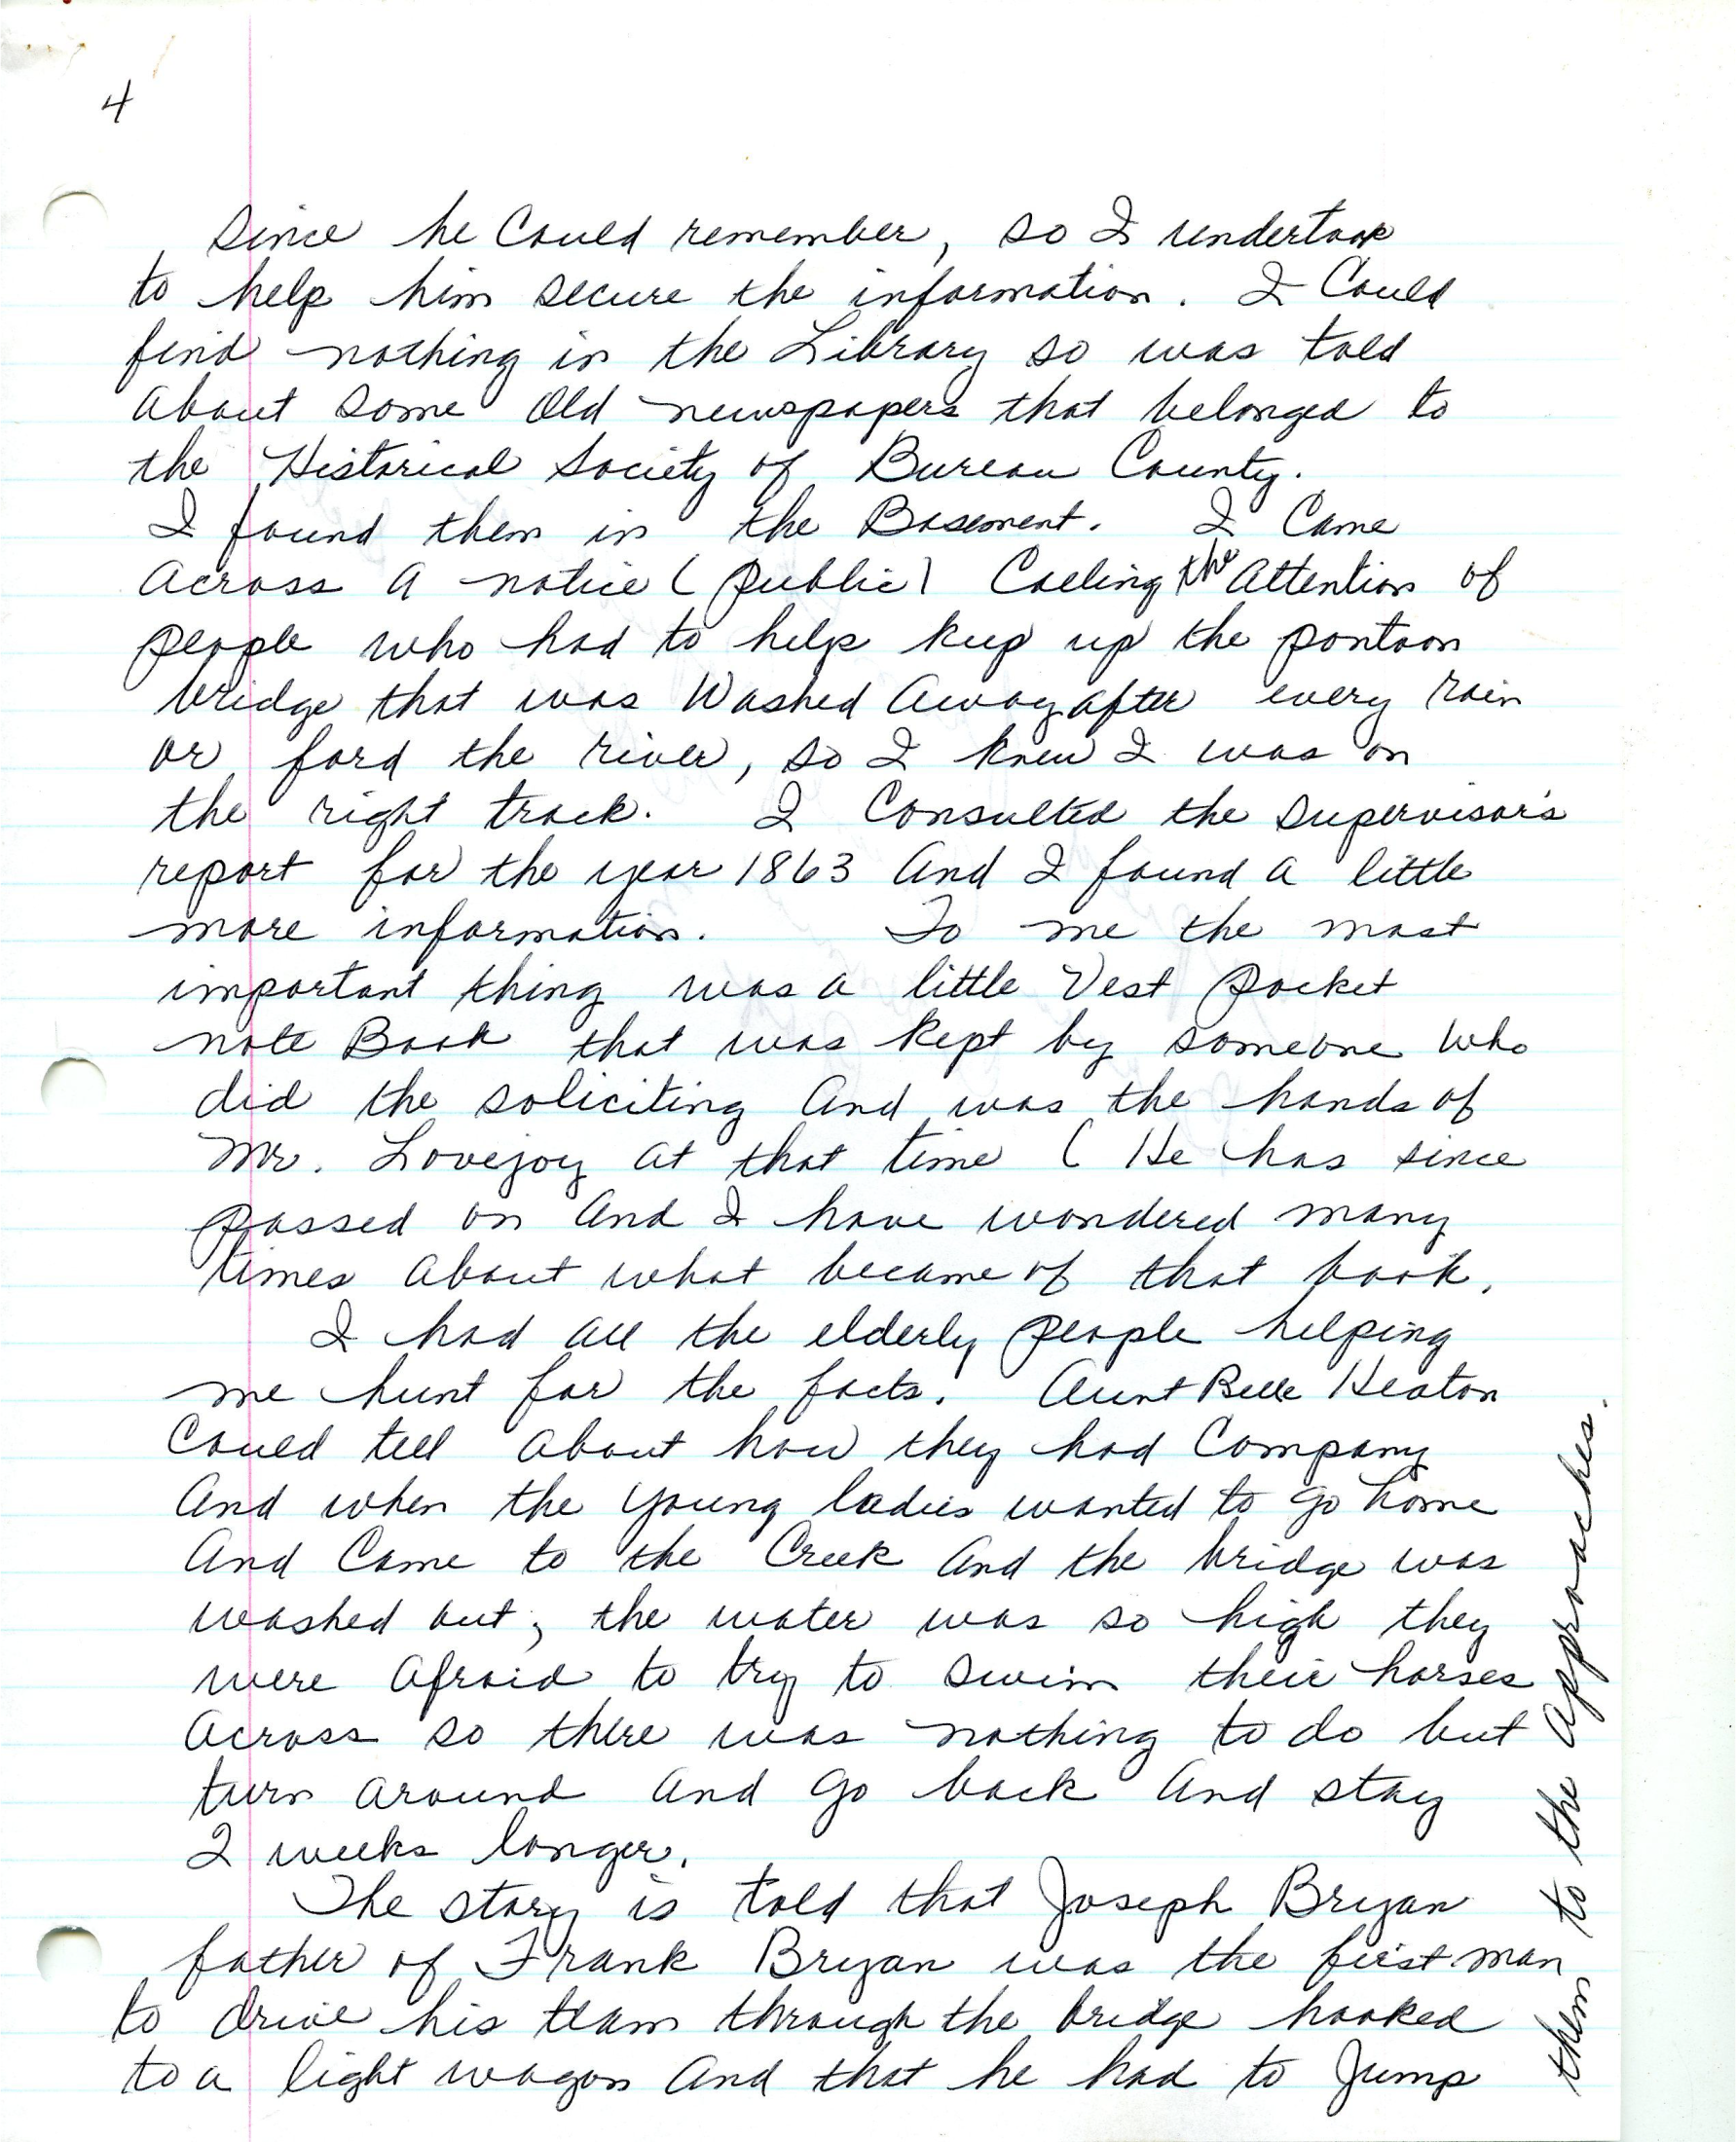 4
since he Could remember, so I undertook
to help him secure the information. I Could
find nothing in the Library so was told
about some Old newspapers that belonged to
the Historical Society of Bureau County.
I found them in the Basement. I Came
across a notice (public) Calling the Attention of
people who had to help keep up the pontoon
bridge that was Washed Away after every rain
or ford the river, so I knew I was on
the right track. I Consulted the supervisor's
report for the year 1863 And I found a little
more information. To me the most
important thing was a little Vest pocket
note Book that was kept by someone who
did the soliciting And was the hands of
Mr. Lovejoy at that time (He has since
passed on And I have wondered many
times about what became of that book.
I had all the elderly people helping
me hunt for the facts. Aunt Belle Heaton
Could tell about how they had Company
And when the young ladies wanted to go home
And Came to the Creek And the bridge was
washed out, the water was so high they
were afraid to try to swim their horses
across so there was nothing to do but
turn around and go back And stay
2 weeks longer.
The story is told that Joseph Bryan
father of Frank Bryan was the first man
to drive his team through the bridge hooked
to a light wagon And that he had to Jump
them to the approaches.